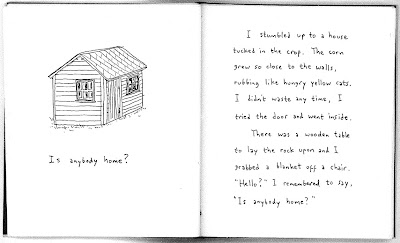 Is anybody home?
I stumbled up to a house
tucked in the crop. The corn
grew so close to the walls,
rubbing like hungry yellow cats.
I didn't waste any time, I
tried the door and went inside.
There was a wooden table
to lay the rock upon and I
grabbed a blanket off a chair.
"Hello?" I remembered to say.
"Is anybody home?"